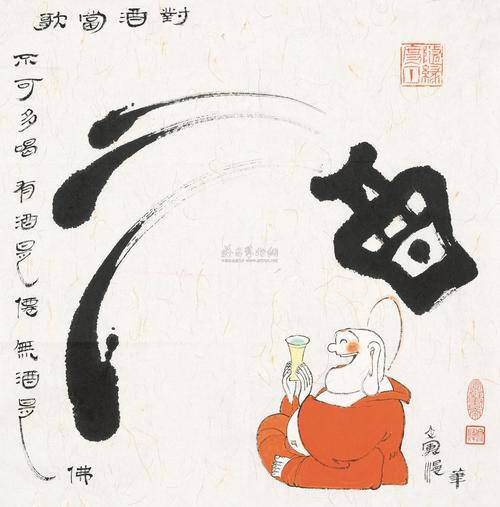 對酒當歌
酒
不可多喝 有酒是僊 無酒是
佛